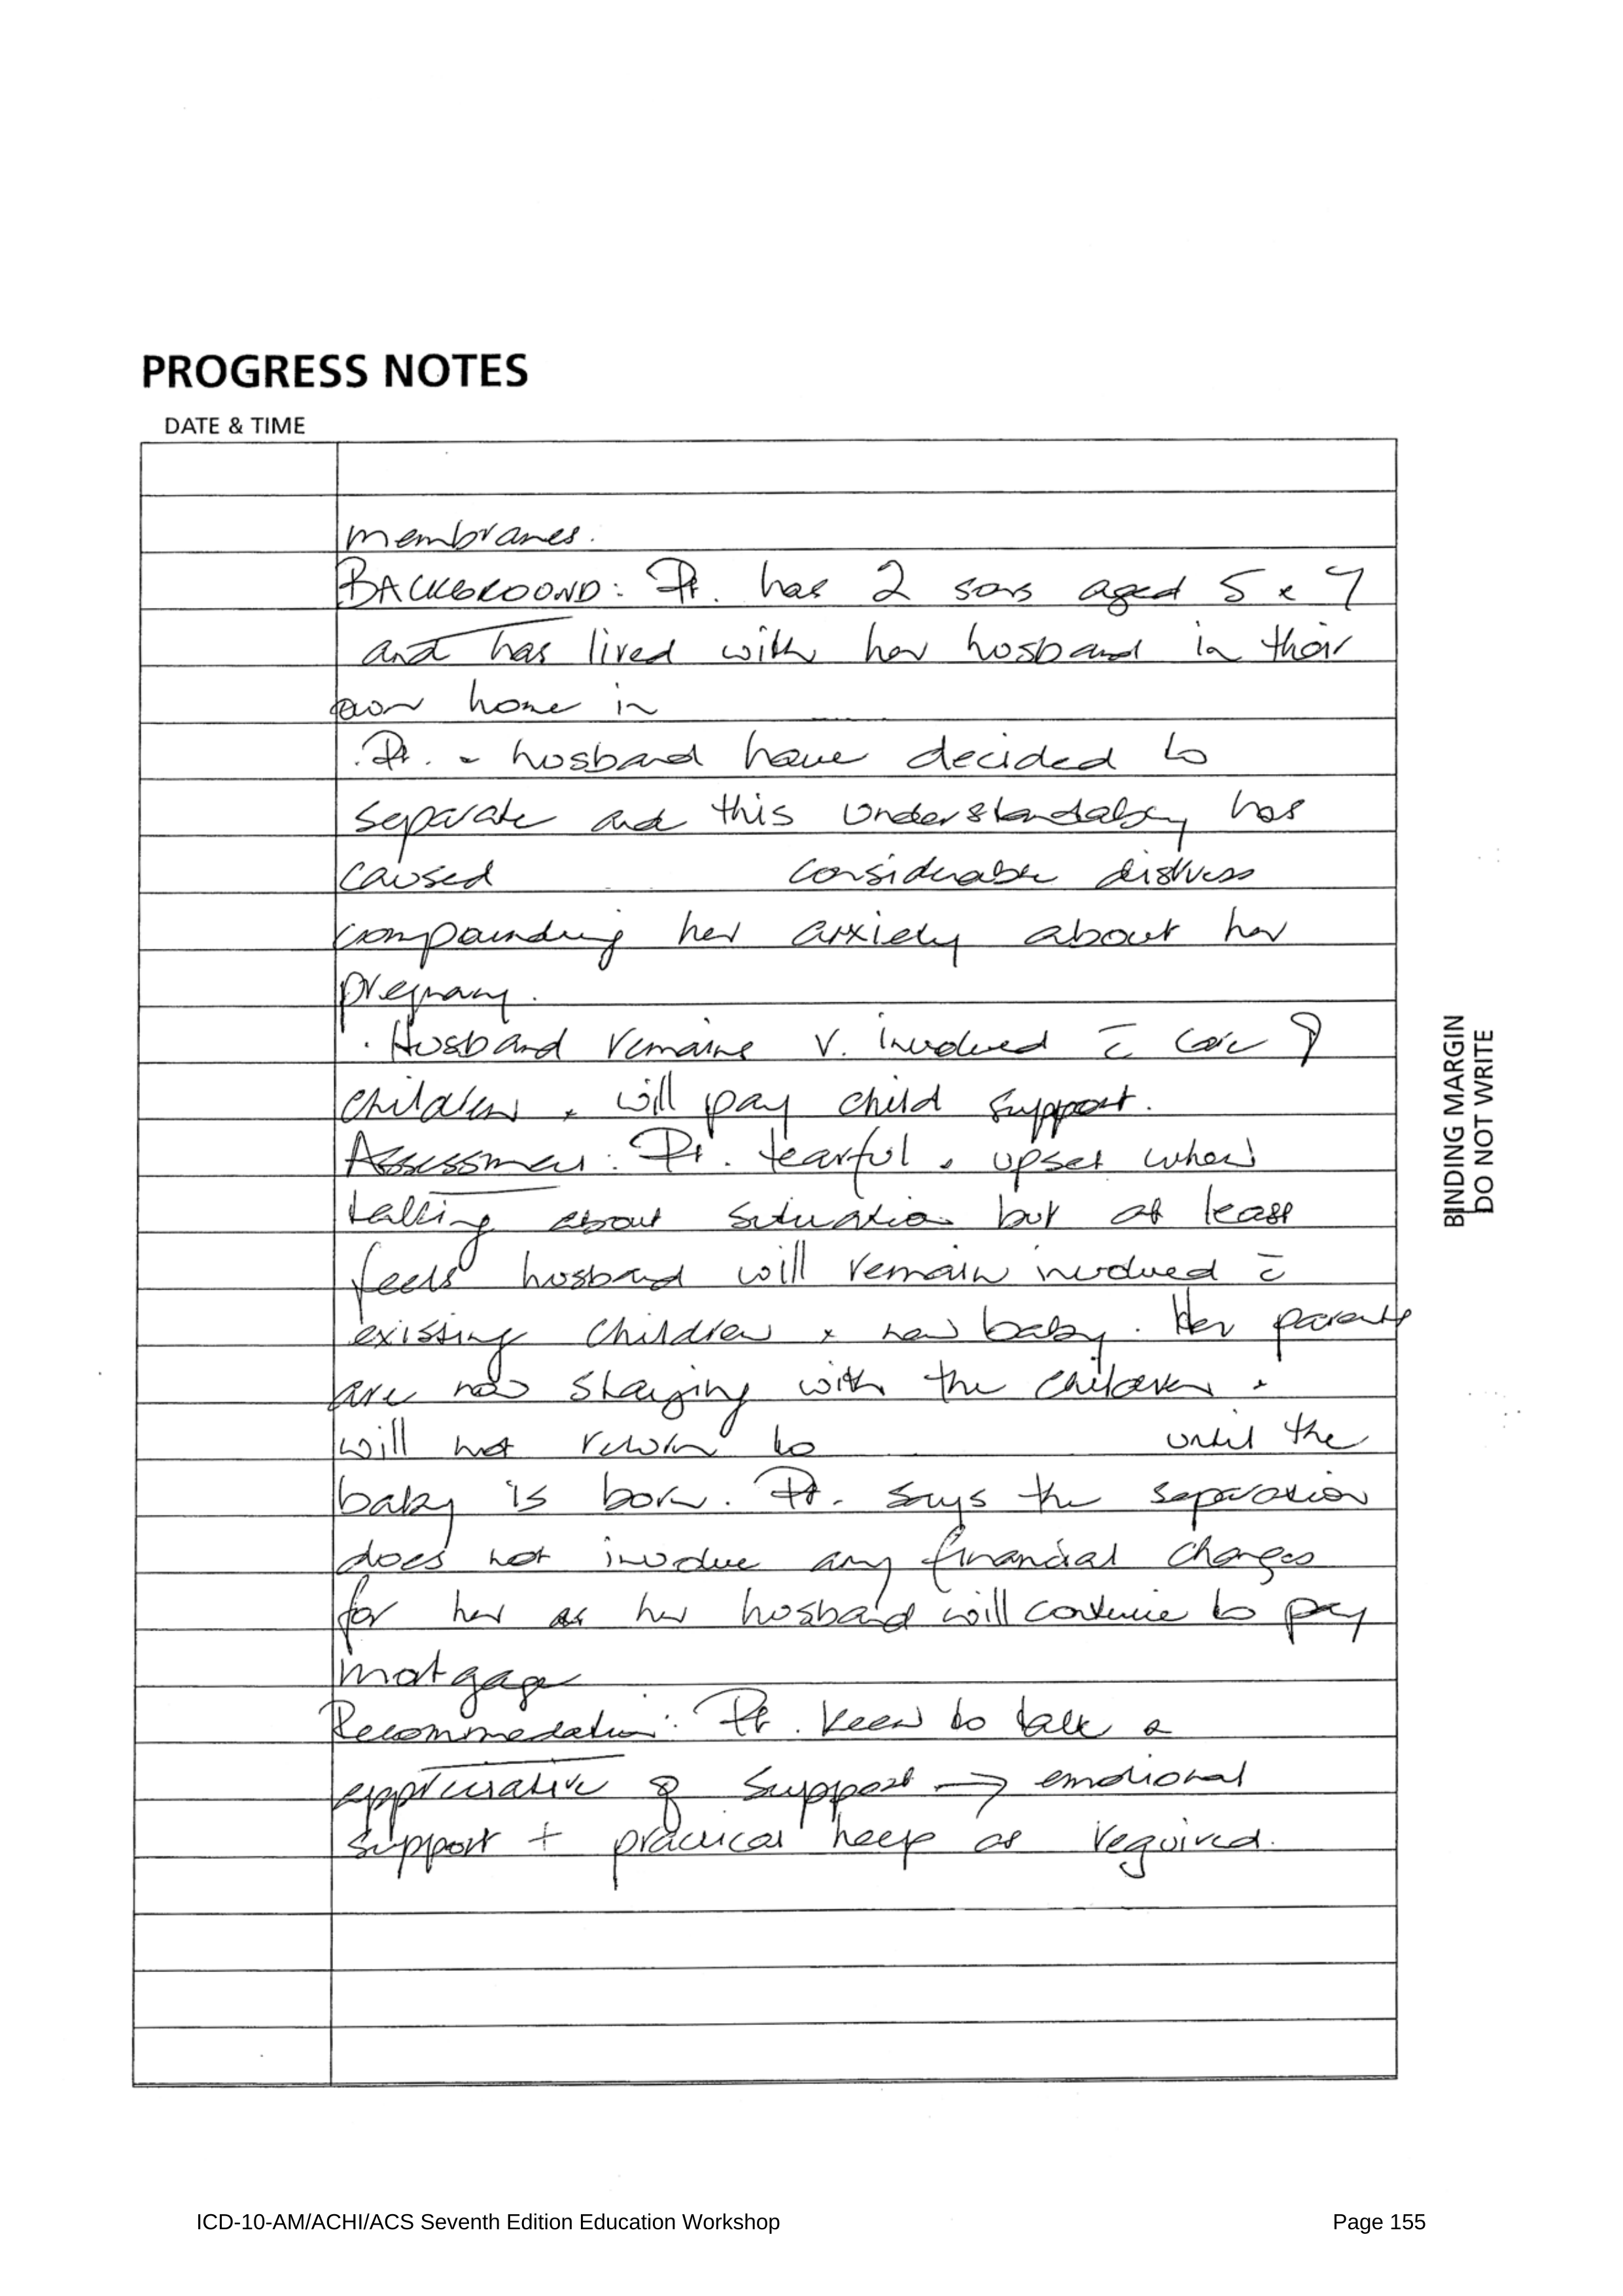 PROGRESS NOTES
DATE & TIME
membranes.
BACKGROUND: Pt. has 2 sons aged 5 & 7
and has lived with her husband in their
own home in
Pt. & husband have decided to
separate and this understandably has
caused considerable distress
compounding her anxiety about her
pregnancy.
· Husband remains v. involved c̄ care of
children & will pay child support.
Assessment: Pt. tearful & upset when
talking about situation but at least
feels husband will remain involved c̄
existing children & new baby. Her parents
are now staying with the children &
will not return to until the
baby is born. Pt. says the separation
does not involve any financial changes
for her as her husband will continue to pay
motgage
Recommedation: Pt. keen to talk &
appreciative of support → emotional
support + practical help as required.
BINDING MARGIN
DO NOT WRITE
ICD-10-AM/ACHI/ACS Seventh Edition Education Workshop Page 155